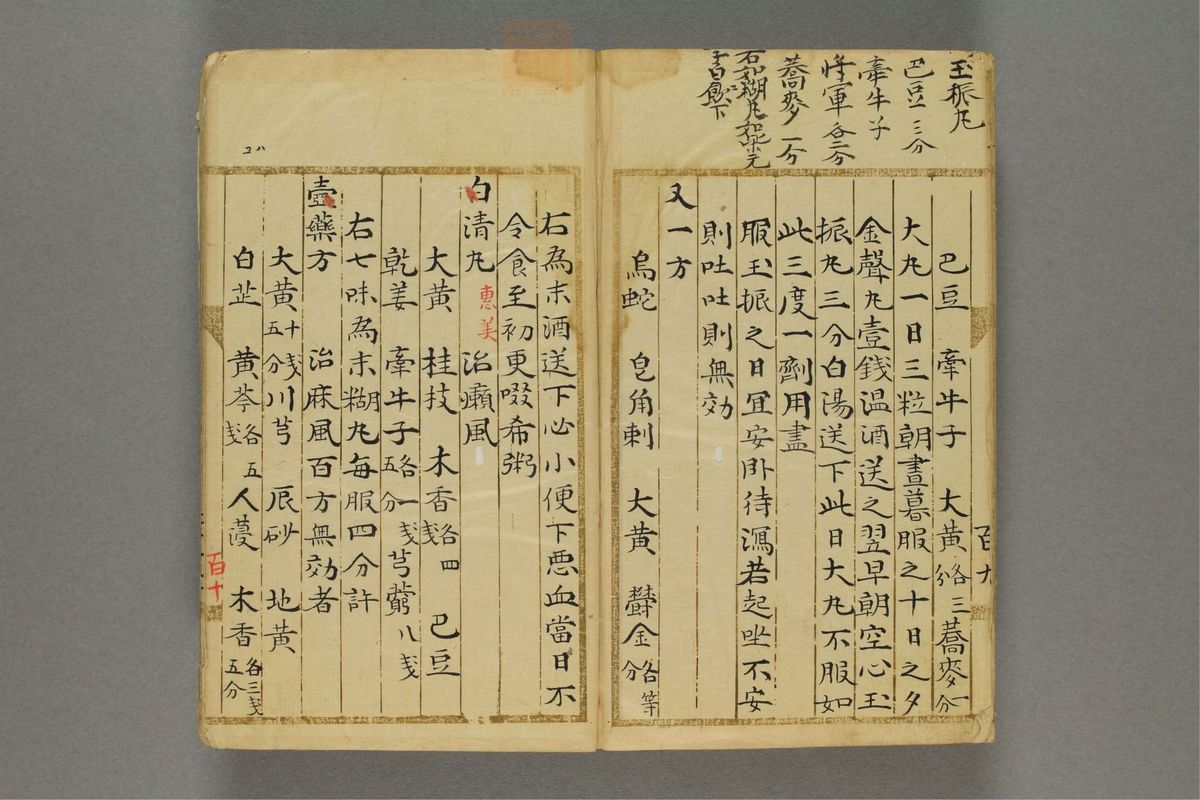 玉振丸
巴豆 三分
牽牛子
将軍 各二分
蕎麦 一分
右如糊丸如米元
子白飲下
巴豆 牽牛子 大黄各三分 蕎麥一分
大丸一日三粒朝晝暮服之十日之夕
金聲丸壹錢温酒送之翌早朝空心玉
振丸三分白陽送下此日大丸不服如
此三度一劑用盡
服玉振之日冝安卧待瀉若起坐不安
則吐吐則無効
又一方
烏蛇 皂角刺 大黄 欝金各等分
百九
右為末酒送下必小便下悪血當日不
令食至初更啜希粥
白清丸 惠美 治癩風
大黄 桂枝 木香各四戔 巴豆
乾姜 牽牛子各五分 一戔 芎藭八戔
右七味為末糊丸每服四分許
壺藥方 治麻風百方無効者
大黄十戔五分 川芎 辰砂 地黄
白芷 黄芩各五戔 人薓 木香各三戔五分
百十